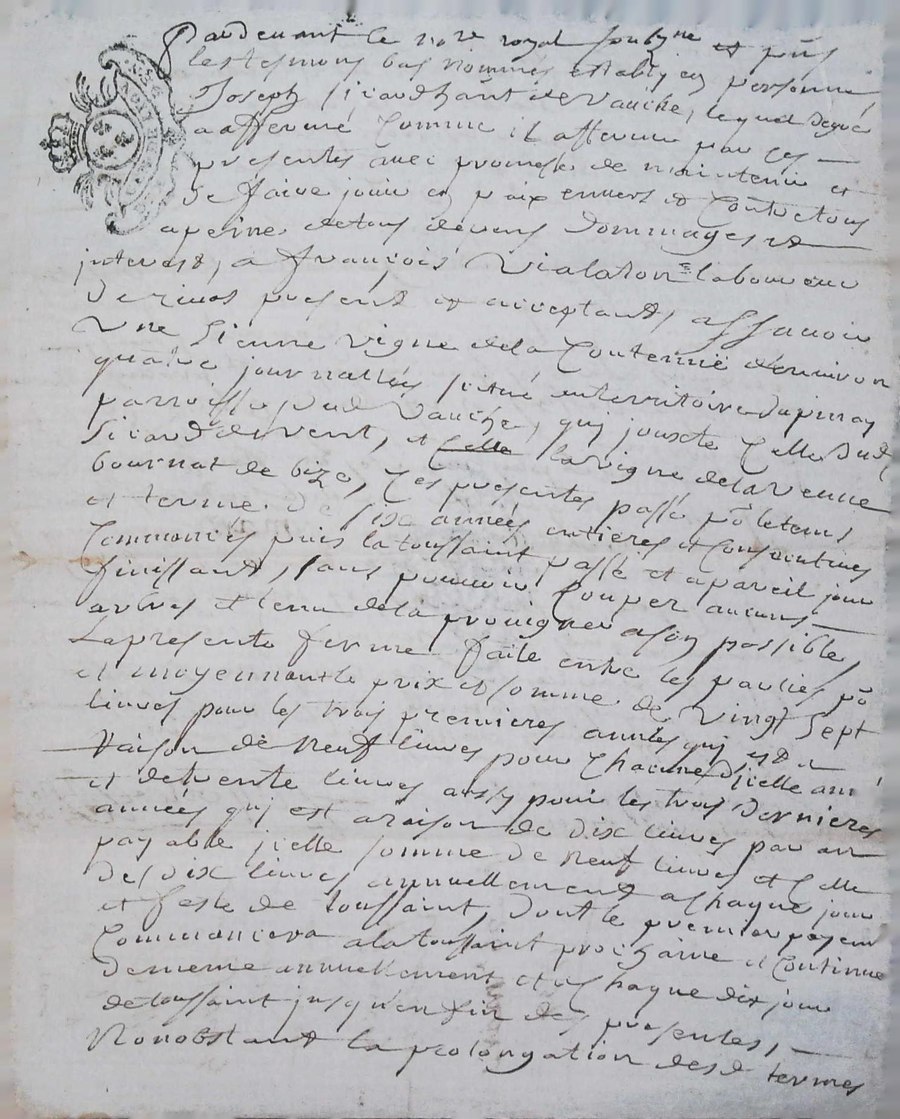 Pardevant le no.re royal soub.ne et pñs
les tesmoins bas nommés estably en personne
Joseph Sicaud hant de Vauche, lequel de gré
a affermé comme il afferme par ces
presentes avec promesse de maintenir et
de faire jouir en paix envers et contre tous
a peine de tous despens dommages et
interest, a François Vialaron laboureur
de present et acceptant, assavoir
Une sienne vigne de la Contenue d'environ
quatre journallées situé en territoire dupinay
parroisse dud Vauche, quj jouxte Celle dud
Sicaud de vent, et Celle la vigne de la Veuve
bournat de bize, Ces presentes passé põ le tems
et terme de six années entieres et Consecutives
Commancés puis la toussaint passé et a pareil jour
finissant, sans pouvoir Couper aucuns
arbres et tenu de la provigner a son possible,
La presente ferme faite entre les parties põ
et moyennant le prix et somme de Vingt Sept
livres pour les trois premieres années quj est a
Raison de neuf livres pour Chacune d'jcelle
et de trente livres aussy pour les trois dernieres
années quj est a raison de dix livres par an
payable jcelle somme de neuf livres et Celle
de dix livres annuellement a Chaque jour
et feste de toussaint, dont le premier payem
Commancera a la toussaint prochaine et Continue
de meme annuellement et a Chaque dix jour
de toussaint jusqu'en fin des presentes,
Nonobstant la prolongation desd termes